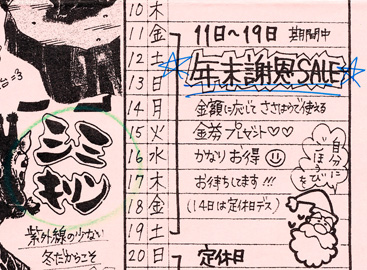 10 木
11 金 11日〜19日 期間中
12 土 年末謝恩SALE
13 日
14 月 金額に応じて ささはりで使える
15 火 金券プレゼント♡♡
16 水 かなりお得
17 木 お待ちしてます!!!
18 金 (14日は定休日デス)
19 土
20 日 定休日
自分に
ごほうび
を
ミミ
キリン
紫外線の少ない
冬だからこそ